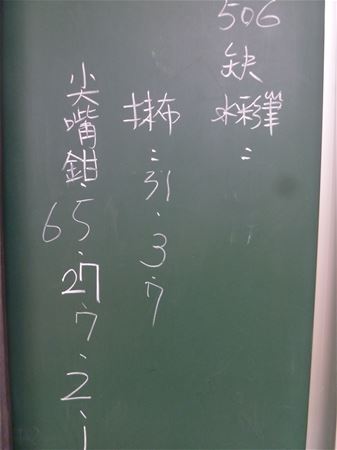 506
缺
水彩筆：
抹布：31、3、7
尖嘴鉗：65、27、7、2、1